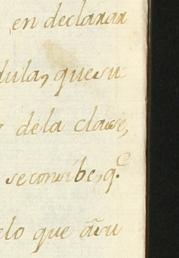 en declarar
dula, quesu
dela clase,
seconsibe, q.e
lo que asu